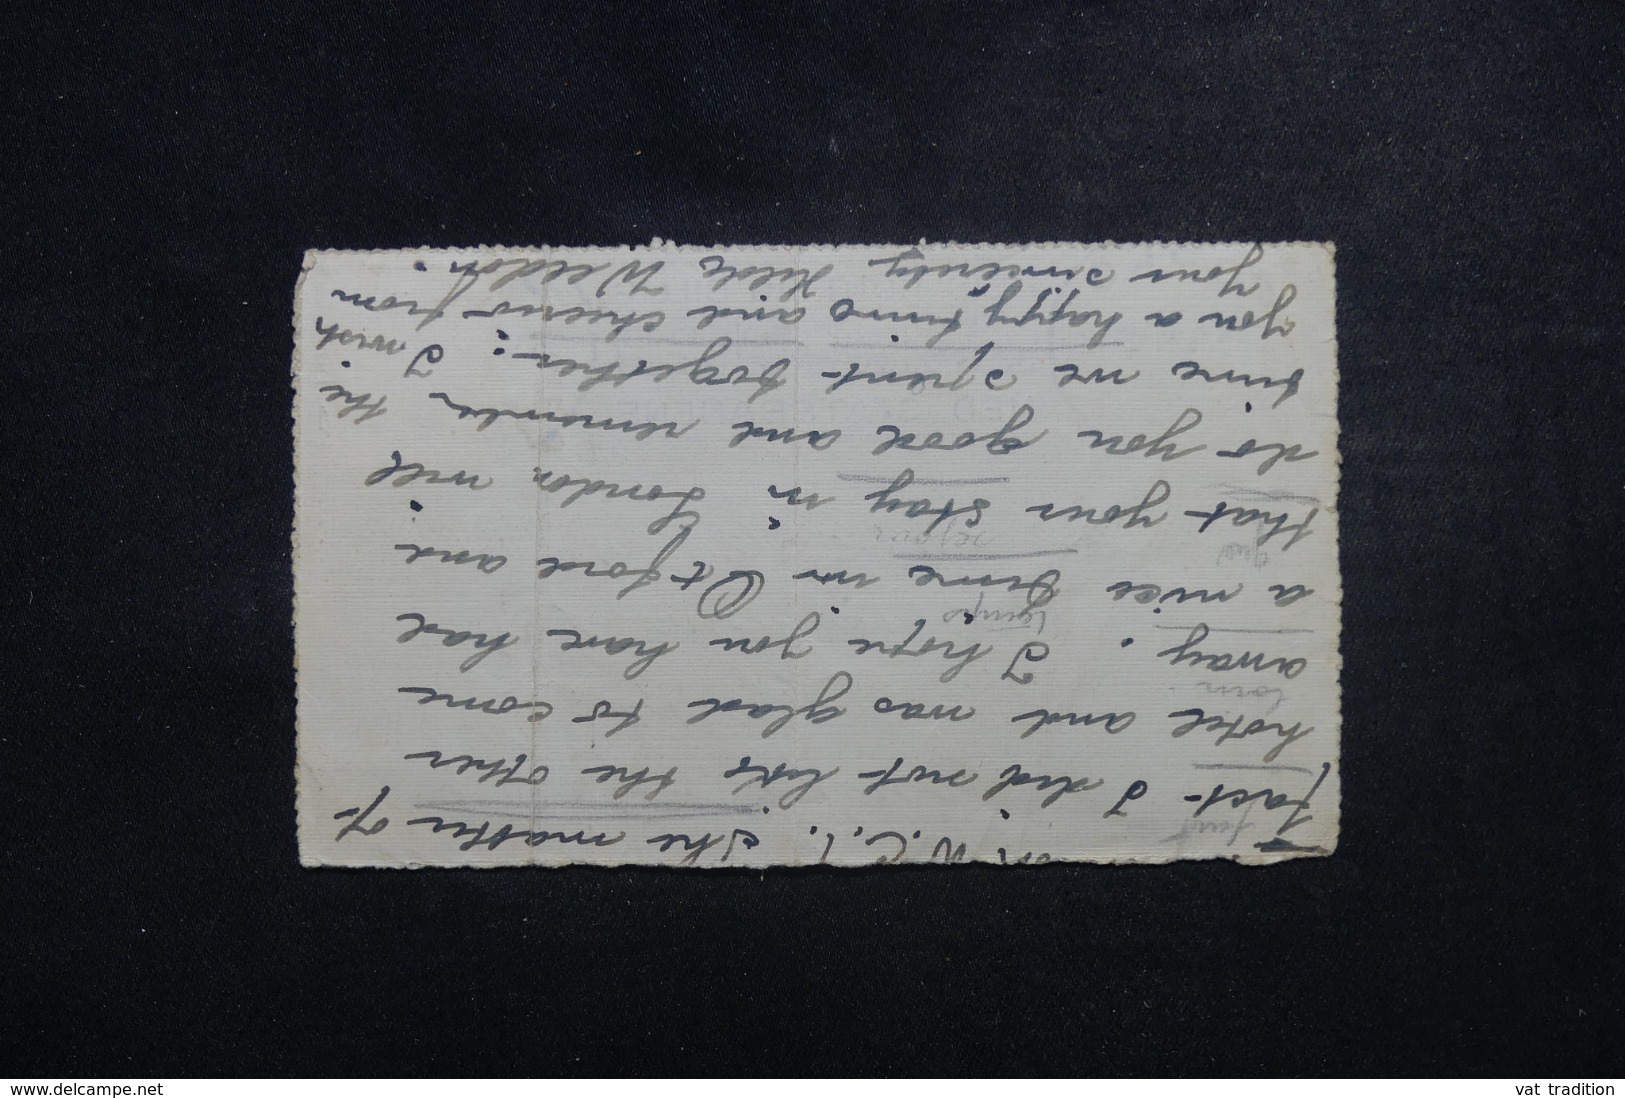 London W.C.1. The matter of
fact I did not like the other
hotel and was glad to come
away. I hope you have had
a nice time in Oxford and
that your stay in London will
do you good and remember the
time we spent together. I wish
you a happy time and cheerio from
your sincerely Hilde
loin
temps
que
séjour
www.delcampe.net
vat tradition